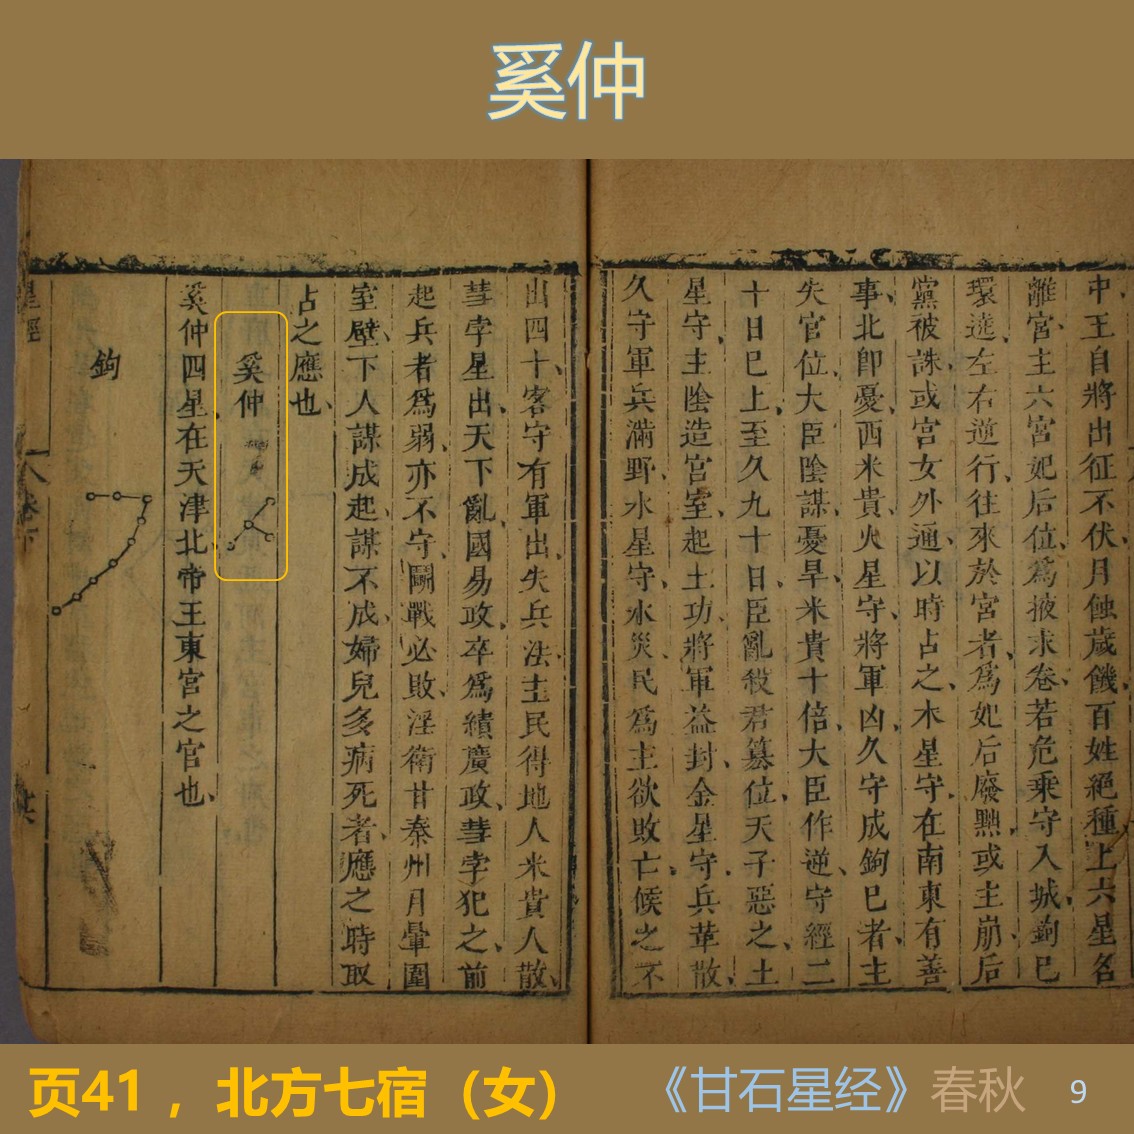 奚仲
中王自將出征不伏月蝕歲饑百姓絕種上六星名
離宮主六宮妃后位為掖求卷若危乗守入城鉤巳
環遶左右逆行往來於宮者為妃后廢黜或主崩后
黨被誅或宮女外通以時占之木星守在南東有善
事北卽憂西米貴火星守將軍凶久守成鉤巳者主
失官位大臣陰謀憂旱米貴十倍大臣作逆守經二
十日巳上至久九十日臣亂殺君篡位天子惡之土
星守主陰造宮室起土功將軍益封金星守兵革散
久守軍兵滿野水星守水災民為主欲敗亡候之不
出四十客守有軍出失兵法主民得地人米貴人散
彗孛星出天下亂國易政卒為績廣政彗孛犯之前
起兵者為弱亦不守鬬戰必敗淫衛甘秦州月暈圍
室壁下人謀成起謀不成婦兒多病死者應之時取
占之應也
奚仲
奚仲四星在天津北帝王東宮之官也
鉤
星經
页41 ，北方七宿（女）
《甘石星经》春秋
9